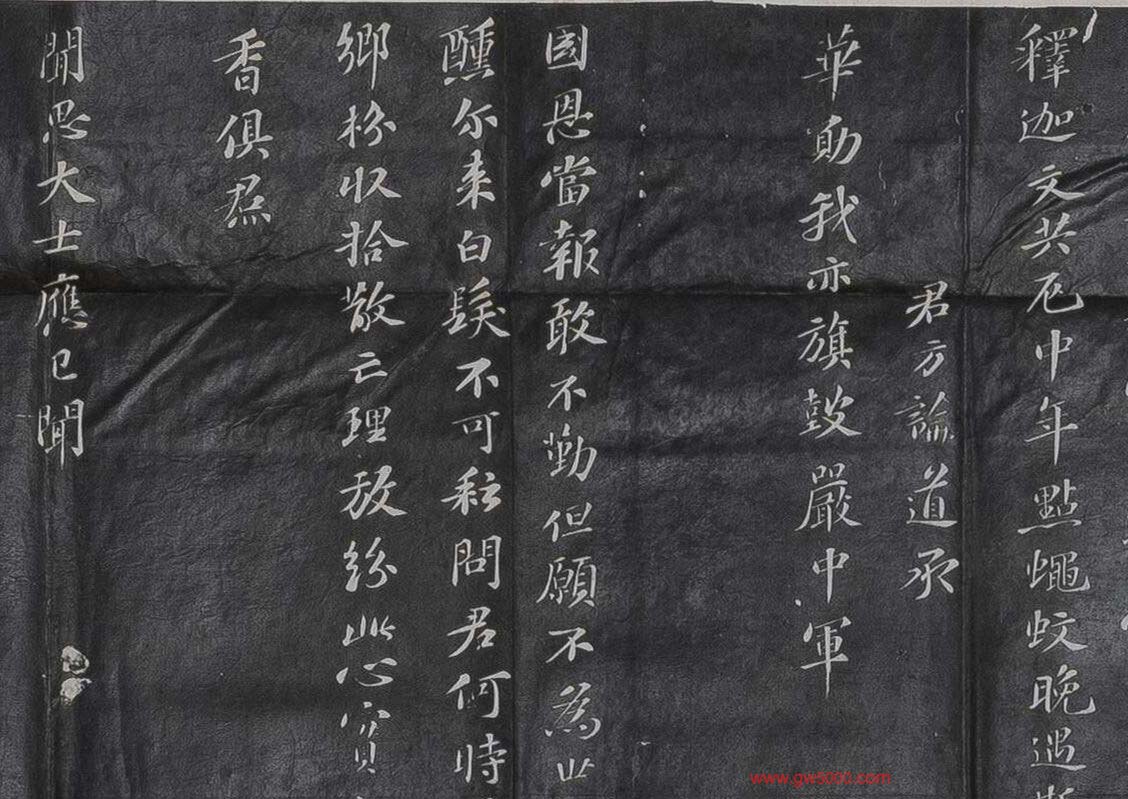 釋迦文共厄中年點蠅蚊晚遇
君方論道承
華勛我亦旗鼓嚴中軍
國恩當報敢不勤但願不為世
醺尔来白髮不可耘問君何時
鄉枌収拾散亡理放紛此心實
香俱焄
聞思大士應已聞
www.gw5000.com